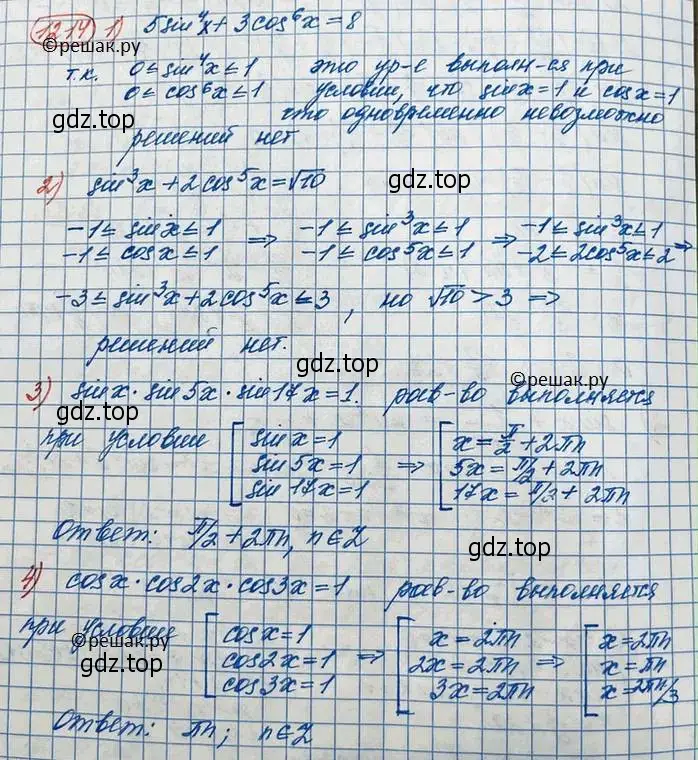 1214 1) 5sin⁴x + 3cos⁶x = 8
©решак.ру
т.к. 0 ≤ sin⁴x ≤ 1 это ур-е выполн-ся при
0 ≤ cos⁶x ≤ 1 условии, что sin x = 1 и cos x = 1
gdz.top
что одновременно невозможно
решений нет
2) sin³x + 2cos⁵x = √10
gdz.top
-1 ≤ sin x ≤ 1 ⇒ -1 ≤ sin³x ≤ 1 ⇒ -1 ≤ sin³x ≤ 1 ⇒
-1 ≤ cos x ≤ 1 -1 ≤ cos⁵x ≤ 1 -2 ≤ 2cos⁵x ≤ 2
-3 ≤ sin³x + 2cos⁵x ≤ 3, но √10 > 3 ⇒
решений нет.
gdz.top
©решак.ру
3) sin x · sin 5x · sin 17x = 1. рав-во выполняется
при условии [ sin x = 1 ⇒ [ x = π/2 + 2πn
sin 5x = 1 5x = π/2 + 2πn
sin 17x = 1 17x = π/2 + 2πn
Ответ: π/2 + 2πn, n ∈ Z
gdz.top
4) cos x · cos 2x · cos 3x = 1 рав-во выполняется
при условии [ cos x = 1 ⇒ [ x = 2πn ⇒ [ x = 2πn
©решак.ру
cos 2x = 1 2x = 2πn x = πn
gdz.top
cos 3x = 1 3x = 2πn x = 2πn/3
Ответ: πn; n ∈ Z
gdz.top